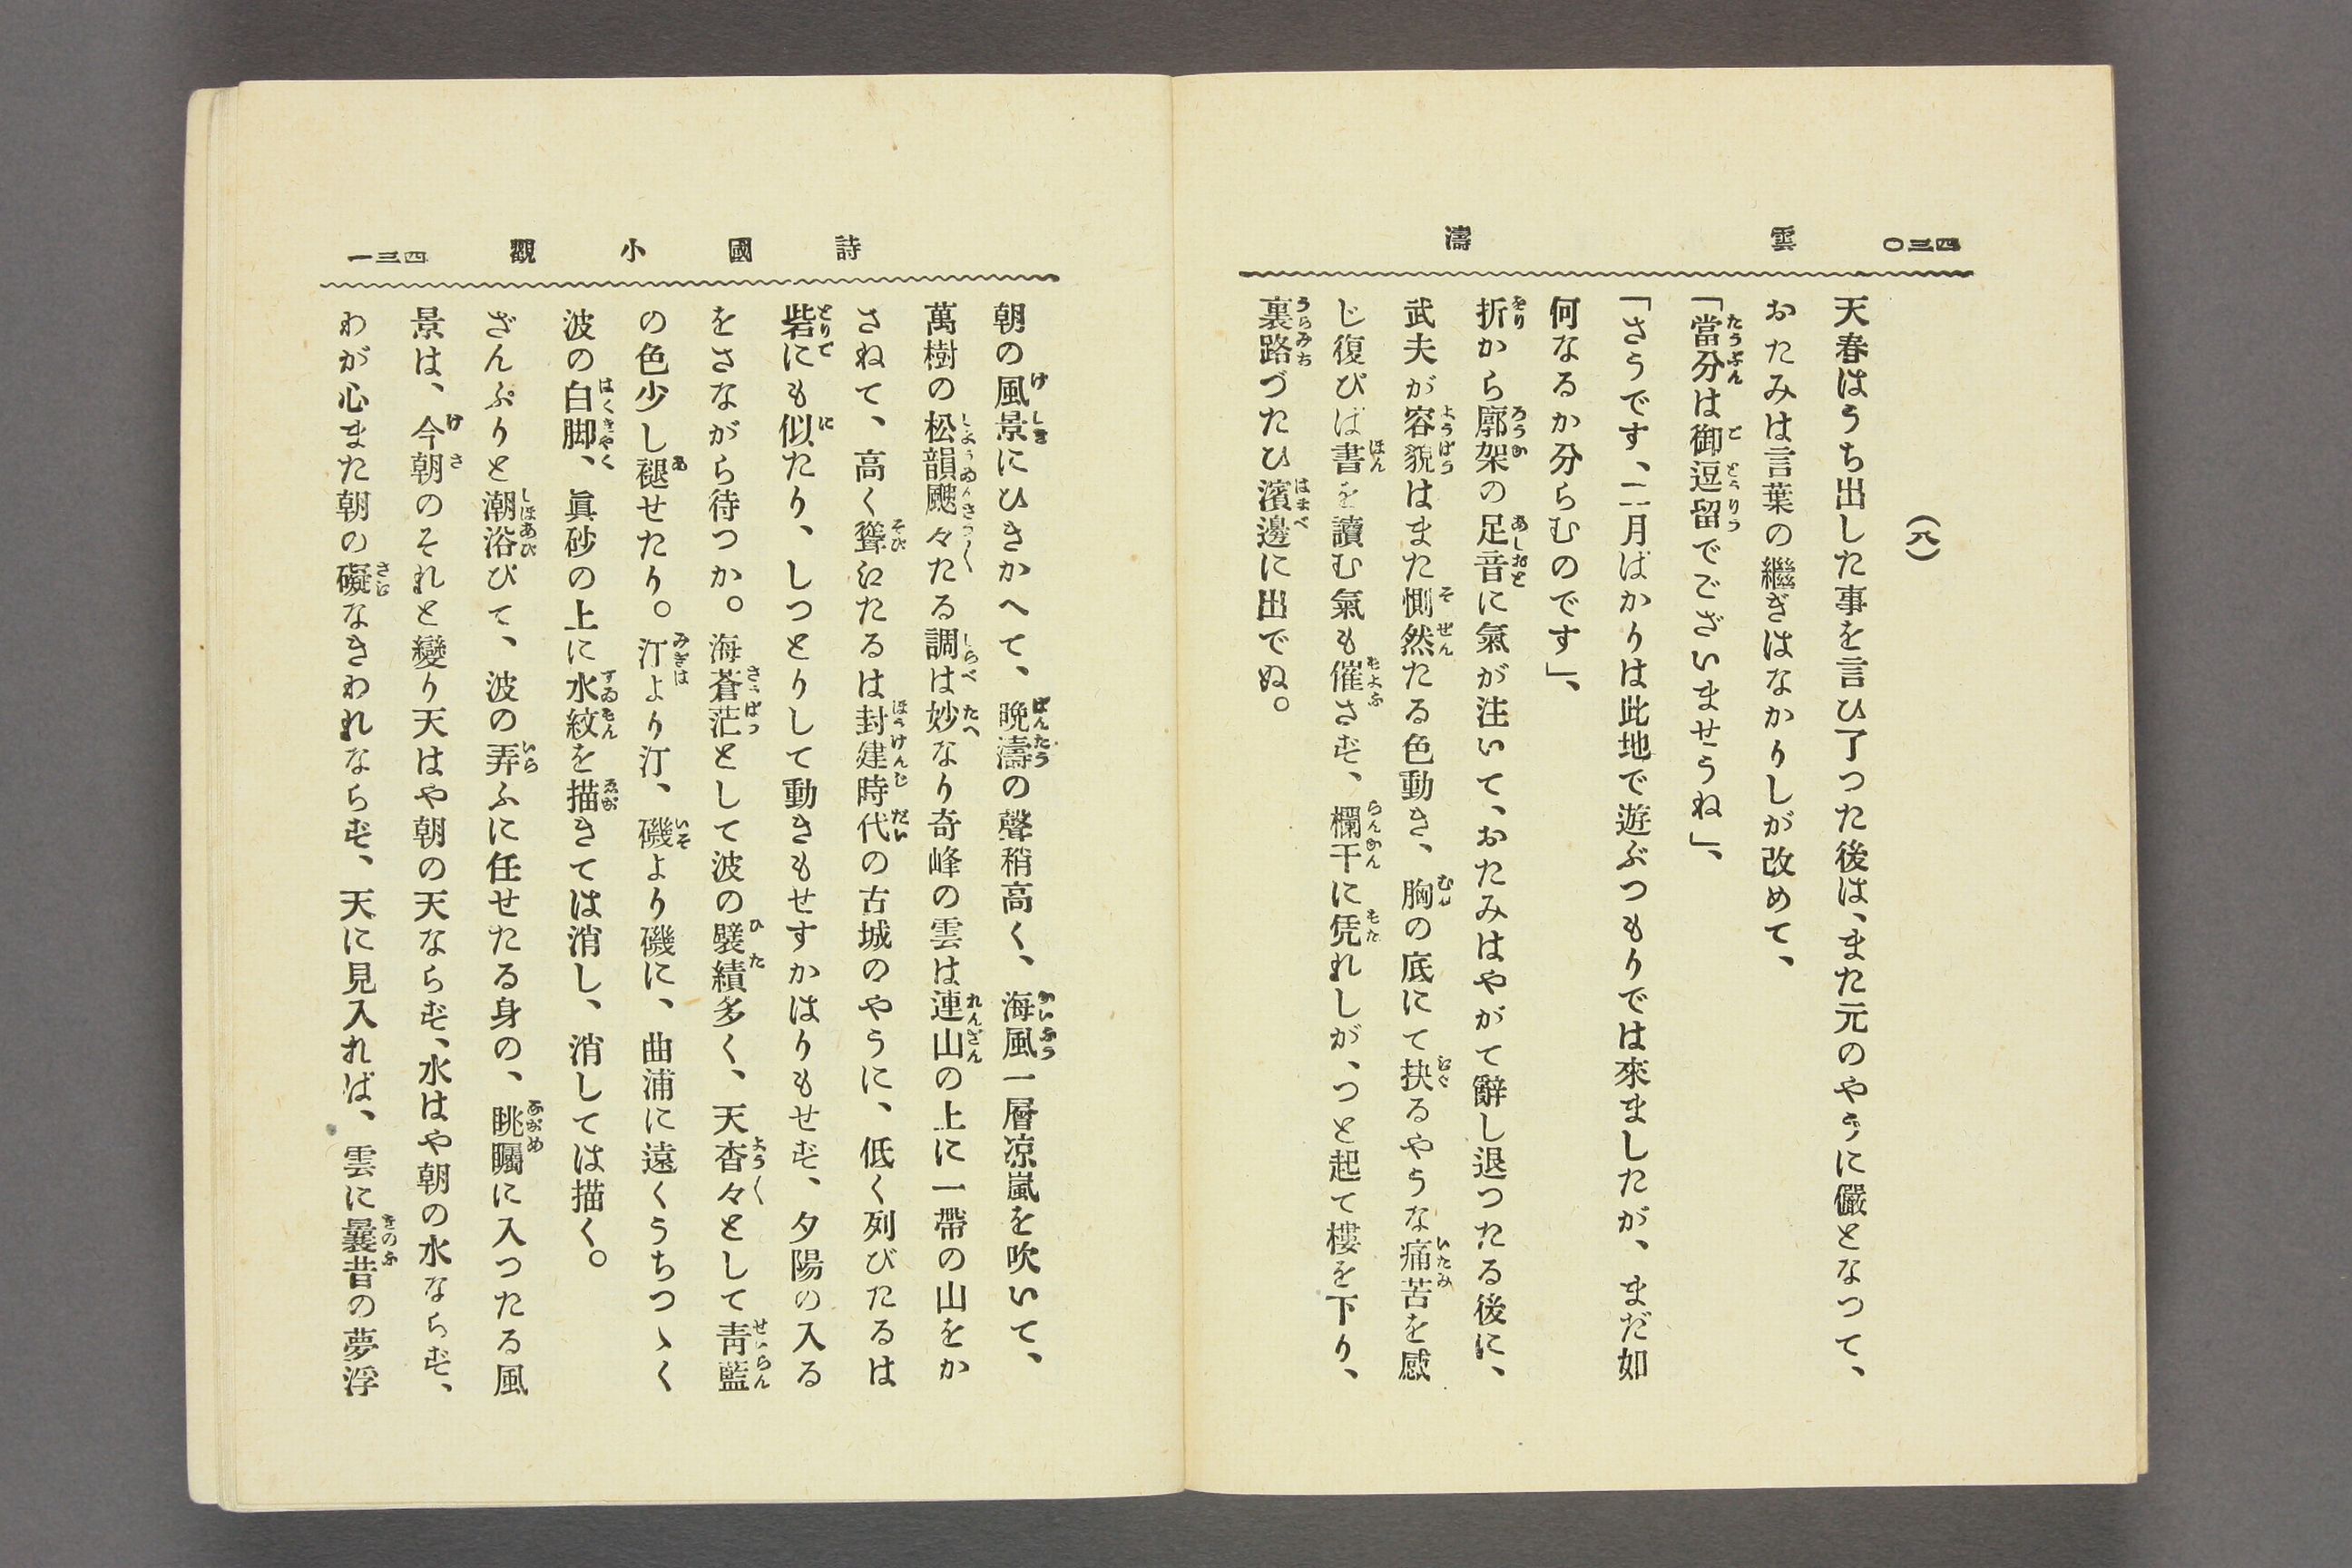 四三〇
雲濤
(八)
天春はうち出した事を言ひ了つた後は、また元のやうに儼となつて、
おたみは言葉の繼ぎはなかりしが改めて、
「當分は御逗留でございませうね」、
「さうです、二月ばかりは此地で遊ぶつもりでは來ましたが、まだ如
何なるか分らむのです」、
折から廓架の足音に氣が注いて、おたみはやがて辭し退つたる後に、
武夫が容貌はまた惻然たる色動き、胸の底にて抉るやうな痛苦を感
じ復びば書を讀む氣も催さず、欄干に凭れしが、つと起て樓を下り、
裏路づたひ濱邊に出でぬ。
詩國小觀
四三一
朝の風景にひきかへて、晩濤の聲稍高く、海風一層凉嵐を吹いて、
萬樹の松韻颼々たる調は妙なり奇峰の雲は連山の上に一帶の山をか
さねて、高く聳江たるは封建時代の古城のやうに、低く列びたるは
砦にも似たり、しつとりして動きもせすかはりもせず、夕陽の入る
をさながら待つか。海蒼茫として波の襞績多く、天杳々として靑藍
の色少し褪せたり。汀より汀、磯より磯に、曲浦に遠くうちつゝく
波の白脚、眞砂の上に水紋を描きては消し、消しては描く。
ざんぶりと潮浴びて、波の弄ふに任せたる身の、眺矚に入つたる風
景は、今朝のそれと變り天はや朝の天ならず、水はや朝の水ならず、
わが心また朝の礙なきわれならず、天に見入れば、雲に曩昔の夢浮